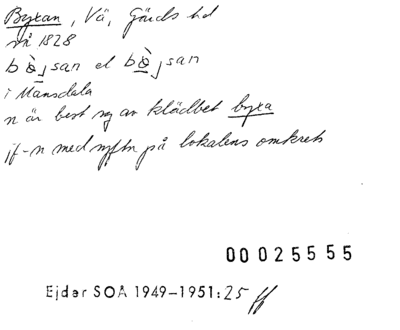 Byxan, Vä, Gärds hd
nå 1828
bò̱j san el bò̱j san
i Mansdala
n är best sg av klädbet byxa
jf-n med syftn på lokalens omkrets
00025555
Ejder SOÅ 1949-1951:25 ff